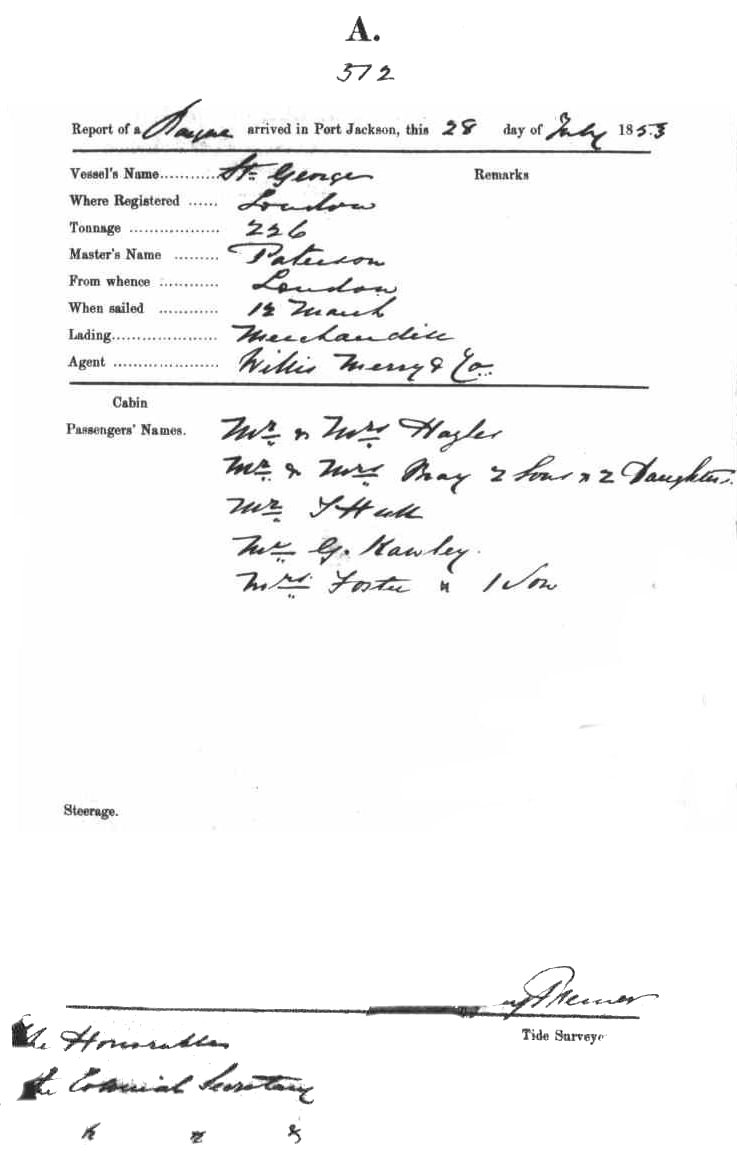 A.
572
Report of a Barque arrived in Port Jackson, this 28 day of July 1853
Vessel's Name........... St. George Remarks
Where Registered ...... London
Tonnage .................. 226
Master's Name ......... Paterson
From whence ............ London
When sailed ............ 12 March
Lading..................... Merchandise
Agent ..................... Willis Merry & Co.
Cabin
Passengers' Names. Mr. & Mrs Hagles
Mr. & Mrs Bray 2 Sons & 2 Daughters.
Mr. Hull
Mr. G. Rawley.
Mrs. Foster & 1 Son
Steerage.
Tide Surveyor
The Honorable
the Colonial Secretary
&c &c &c